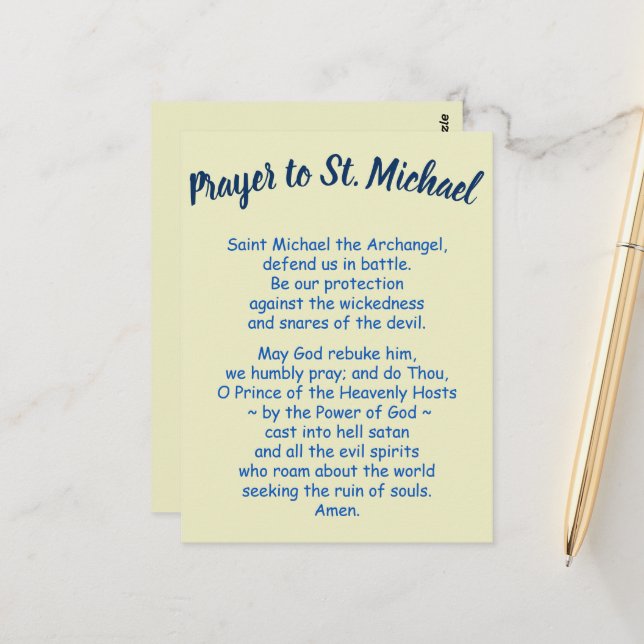 zzle
Prayer to St. Michael
Saint Michael the Archangel,
defend us in battle.
Be our protection
against the wickedness
and snares of the devil.
May God rebuke him,
we humbly pray; and do Thou,
O Prince of the Heavenly Hosts
~ by the Power of God ~
cast into hell satan
and all the evil spirits
who roam about the world
seeking the ruin of souls.
Amen.